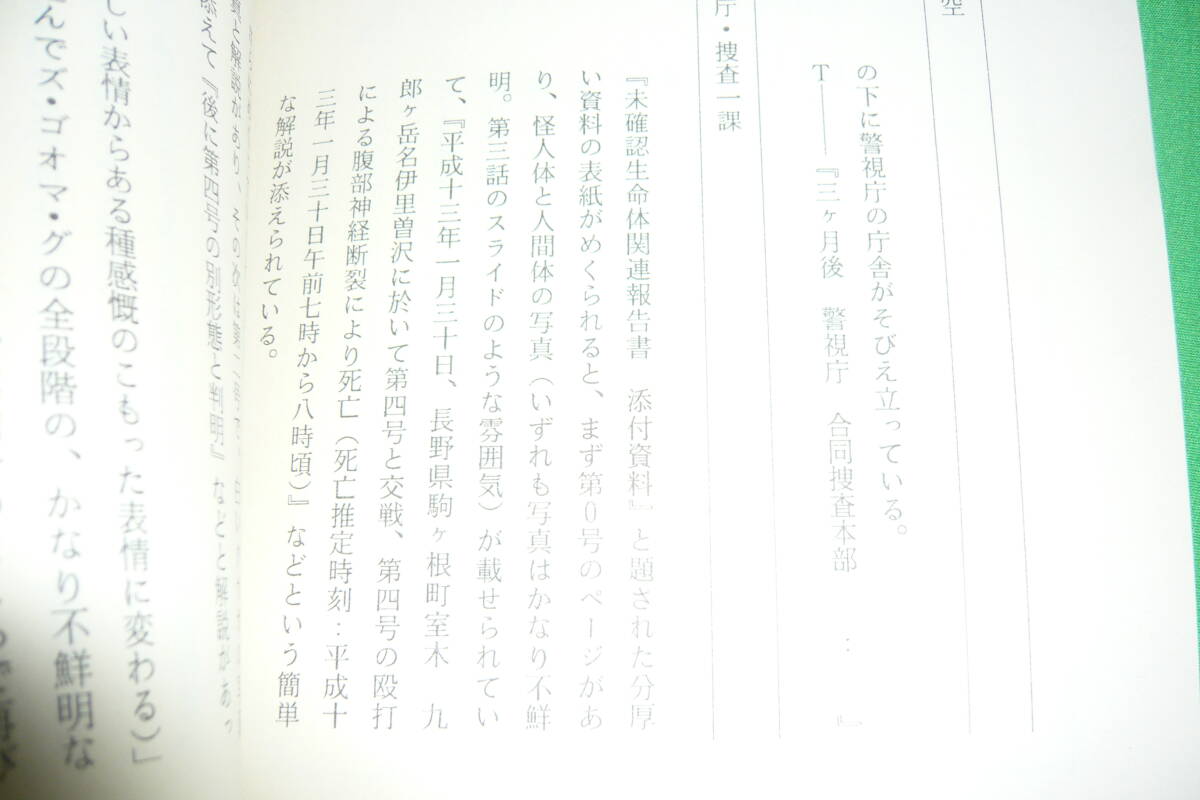 空
の下に警視庁の庁舎がそびえ立っている。
T――『三ヶ月後　警視庁　合同捜査本部　：　』
庁・捜査一課
『未確認生命体関連報告書　添付資料』と題された分厚
い資料の表紙がめくられると、まず第０号のページがあ
り、怪人体と人間体の写真（いずれも写真はかなり不鮮
明。第三話のスライドのような雰囲気）が載せられてい
て、『平成十三年一月三十日、長野県駒ヶ根町室木　九
郎ヶ岳名伊里曽沢に於いて第四号と交戦、第四号の殴打
による腹部神経断裂により死亡（死亡推定時刻：平成十
三年一月三十日午前七時から八時頃）』などという簡単
な解説が添えられている。
と解説があり、その次は第二号で、
添えて『後に第四号の別形態と判明』などと解説があっ
しい表情からある種感慨のこもった表情に変わる）」
んでズ・ゴオマ・グの全段階の、かなり不鮮明な